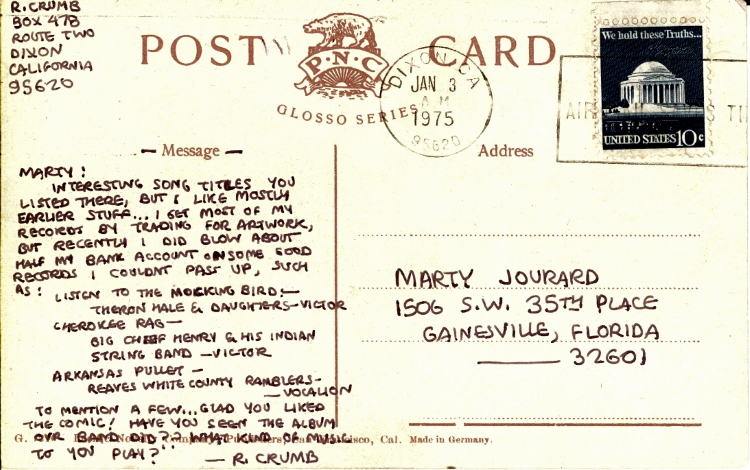 R. CRUMB
BOX 478
ROUTE TWO
DIXON
CALIFORNIA
95620
POST CARD
P·N·C
GLOSSO SERIES
DIXON CA
JAN 3
AM
1975
95620
We hold these Truths...
UNITED STATES 10c
— Message —
Address
MARTY:
INTERESTING SONG TITLES YOU
LISTED THERE, BUT I LIKE MOSTLY
EARLIER STUFF... I GET MOST OF MY
RECORDS BY TRADING FOR ARTWORK,
BUT RECENTLY I DID BLOW ABOUT
HALF MY BANK ACCOUNT ON SOME GOOD
RECORDS I COULDNT PASS UP, SUCH
AS: LISTEN TO THE MOCKING BIRD —
THERON HALE & DAUGHTERS - VICTOR
CHEROKEE RAG —
BIG CHIEF HENRY & HIS INDIAN
STRING BAND — VICTOR
ARKANSAS PULLET —
REAVES WHITE COUNTY RAMBLERS -
— VOCALION
TO MENTION A FEW... GLAD YOU LIKED
THE COMIC! HAVE YOU SEEN THE ALBUM
OUR BAND DID?? WHAT KIND OF MUSIC
TO YOU PLAY?
— R. CRUMB
MARTY JOURARD
1506 S.W. 35TH PLACE
GAINESVILLE, FLORIDA
32601
Cal. Made in Germany.